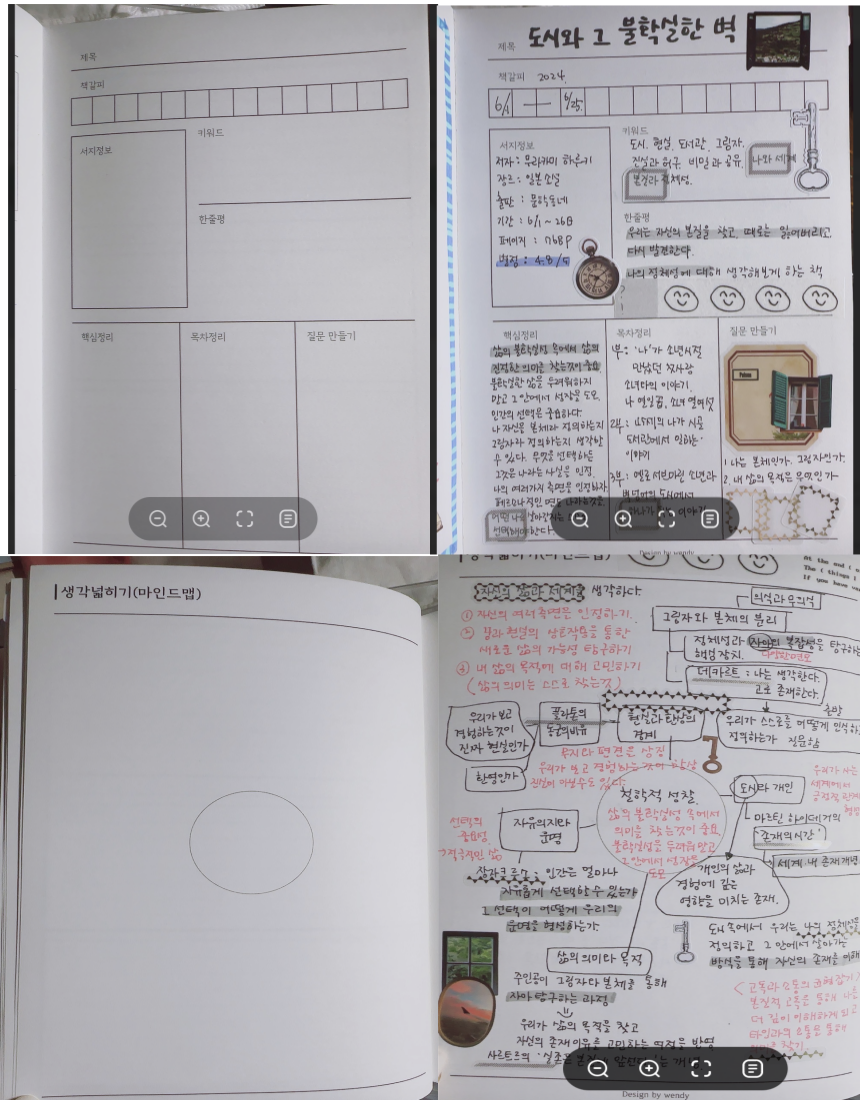 제목
책갈피
서지정보
키워드
한줄평
핵심정리
목차정리
질문 만들기
제목 도시와 그 불확실한 벽
책갈피 2024.
6/1 — 6/25.
서지정보
저자 : 무라카미 하루키
장르 : 일본소설
출판 : 문학동네
기간 : 6/1 ~ 26日
페이지 : 768P
별점 : 4.8/5
키워드
도시. 현실. 도서관. 그림자.
진실과 허구. 비밀과 공유. 나와 세계
본질과 정체성.
한줄평
우리는 자신의 본질을 찾고, 때로는 잃어버리고.
다시 발견한다.
나의 정체성에 대해 생각해보게 하는 책
핵심정리
삶의 불확실성 속에서 삶의
진정한 의미를 찾는것이 중요.
불확실한 삶을 두려워하지
말고 그 안에서 성장을 도모.
인간의 선택은 중요하다.
나 자신을 본체라 정의하는지
그림자라 정의하는지 생각할
수 있다. 무엇을 선택하든
그것은 나라는 사실을 인정.
나의 여러가지 측면을 인정하자
목차정리
1부 : '나'가 소년시절
만났던 첫사랑
소녀와의 이야기.
나 열일곱, 소녀 열여섯
2부 :
도서관에서 일하는
이야기
3부 : 옐로 서브마린 소년과
질문 만들기
1. 나는 본체인가. 그림자인가.
2. 내 삶의 목적은 무엇인가
Design by wendy
생각넓히기(마인드맵)
생각넓히기(마인드맵)
자신의 삶과 세계를 생각하다.
① 자신의 여러측면을 인정하기.
② 꿈과 현실의 상호작용을 통한
새로운 삶의 가능성 탐구하기
③ 내 삶의 목적에 대해 고민하기
(삶의 의미는 스스로 찾는것)
의식과 무의식
그림자와 본체의 분리
정체성과 자아의 복잡성을 탐구하는
핵심 장치.
다양한면모
데카르트 : 나는 생각한다.
고로 존재한다.
출발
우리가 스스로를 어떻게 인식하고
정의하는가 질문함
우리가 보고
경험하는것이
진짜 현실인가
플라톤의
동굴의비유
현실과 환상의
경계
환영인가
무지와 편견은 상징
우리가 보고 경험하는 것이 항상
진실이 아닐수도 있다.
철학적 성찰.
삶의 불확실성 속에서
의미를 찾는것이 중요
불확실성을 두려워 않고
그안에서 성장을
도모
도시와 개인
우리가 사는
세계에서
긍정적 관계
형성
마르틴 하이데거의
'존재와시간'
세계 내 존재개념
개인의 삶과
경험에 깊은
영향을 미치는 존재.
자유의지와
운명
선택의
중요성
→ 적극적인 삶
장 자크 루소 : 인간은 얼마나
자유롭게 선택할 수 있는가
그 선택이 어떻게 우리의
운명을 형성하는가.
삶의 의미와 목적
주인공이 그림자와 본체를 통해
자아 탐구하는 과정
우리가 삶의 목적을 찾고
자신의 존재이유를 고민하는 여정을 반영
도시 속에서 우리는 나의 정체성을
정의하고 그 안에서 살아가는
방식을 통해 자신의 존재를 이해
고독과 소통의 균형잡기
본질적 고독을 통해 나를
더 깊이 이해하게 되고
타인과의 소통을 통해
Design by wendy